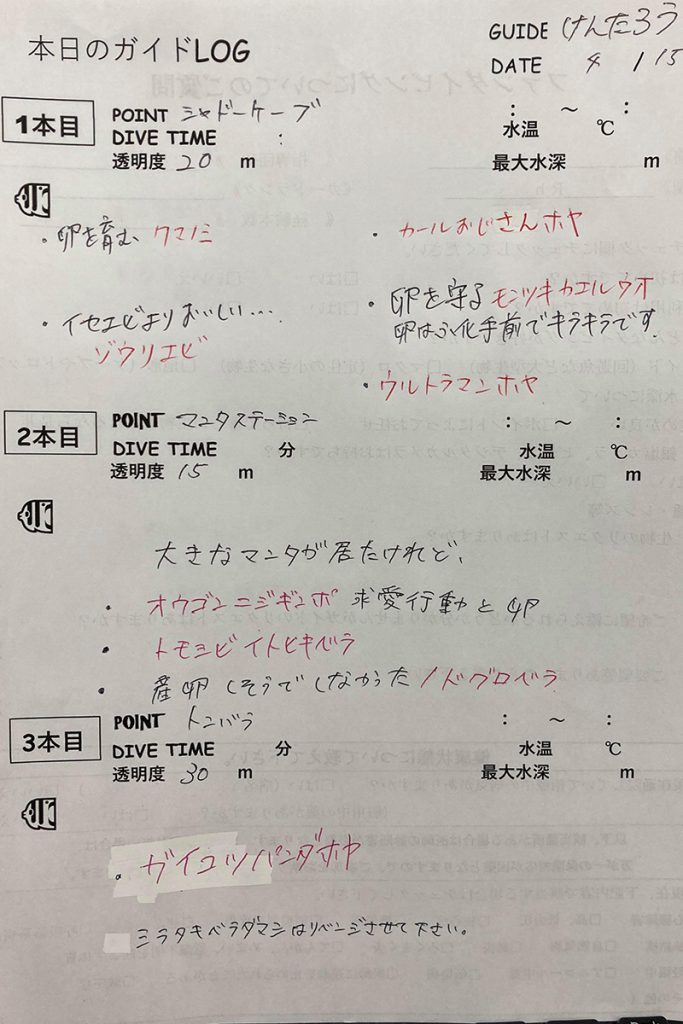 本日のガイドLOG
GUIDE けんたろう
DATE 4 / 15
1本目
POINT シャドーケーブ
DIVE TIME :
: ~ :
水温 ℃
透明度 20 m
最大水深 m
・卵を育む クマノミ
・カールおじさんホヤ
・イセエビよりおいしい...
ゾウリエビ
・卵を守る モンツキカエルウオ
卵はふ化手前でキラキラです
・ウルトラマンホヤ
2本目
POINT マンタステーション
: ~ :
DIVE TIME 分
水温 ℃
透明度 15 m
最大水深 m
大きなマンタが居たけれど、
・オウゴンニジギンポ 求愛行動と卵
・トモシビイトヒキベラ
・産卵しそうでしなかったノドグロベラ
3本目
POINT トンバラ
: ~ :
DIVE TIME 分
水温 ℃
透明度 30 m
最大水深 m
・ガイコツパンダホヤ
ミヤタキベラダマシはリベンジさせて下さい。